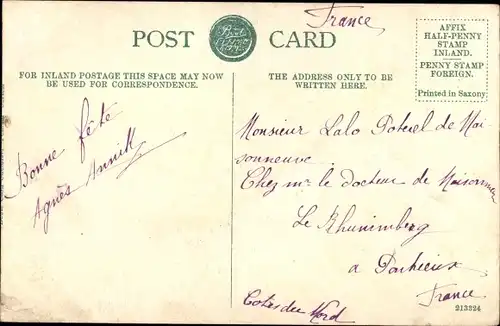 France
POST CARD
AFFIX
HALF-PENNY
STAMP
INLAND.
PENNY STAMP
FOREIGN.
Printed in Saxony
FOR INLAND POSTAGE THIS SPACE MAY NOW
BE USED FOR CORRESPONDENCE.
THE ADDRESS ONLY TO BE
WRITTEN HERE.
Bonne fête
Agnès Annik
Monsieur Lalo Poterel de Mai
sonneuve
Chez mr le docteur de Maisonneu
Le
a
France
Cotes du Nord
213324